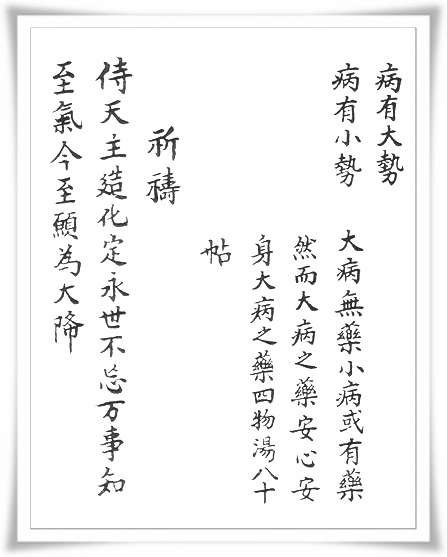 病有大勢
病有小勢
大病無藥小病或有藥
然而大病之藥安心安
身大病之藥四物湯八十
帖
祈禱
侍天主造化定永世不忘万事知
至氣今至願為大降